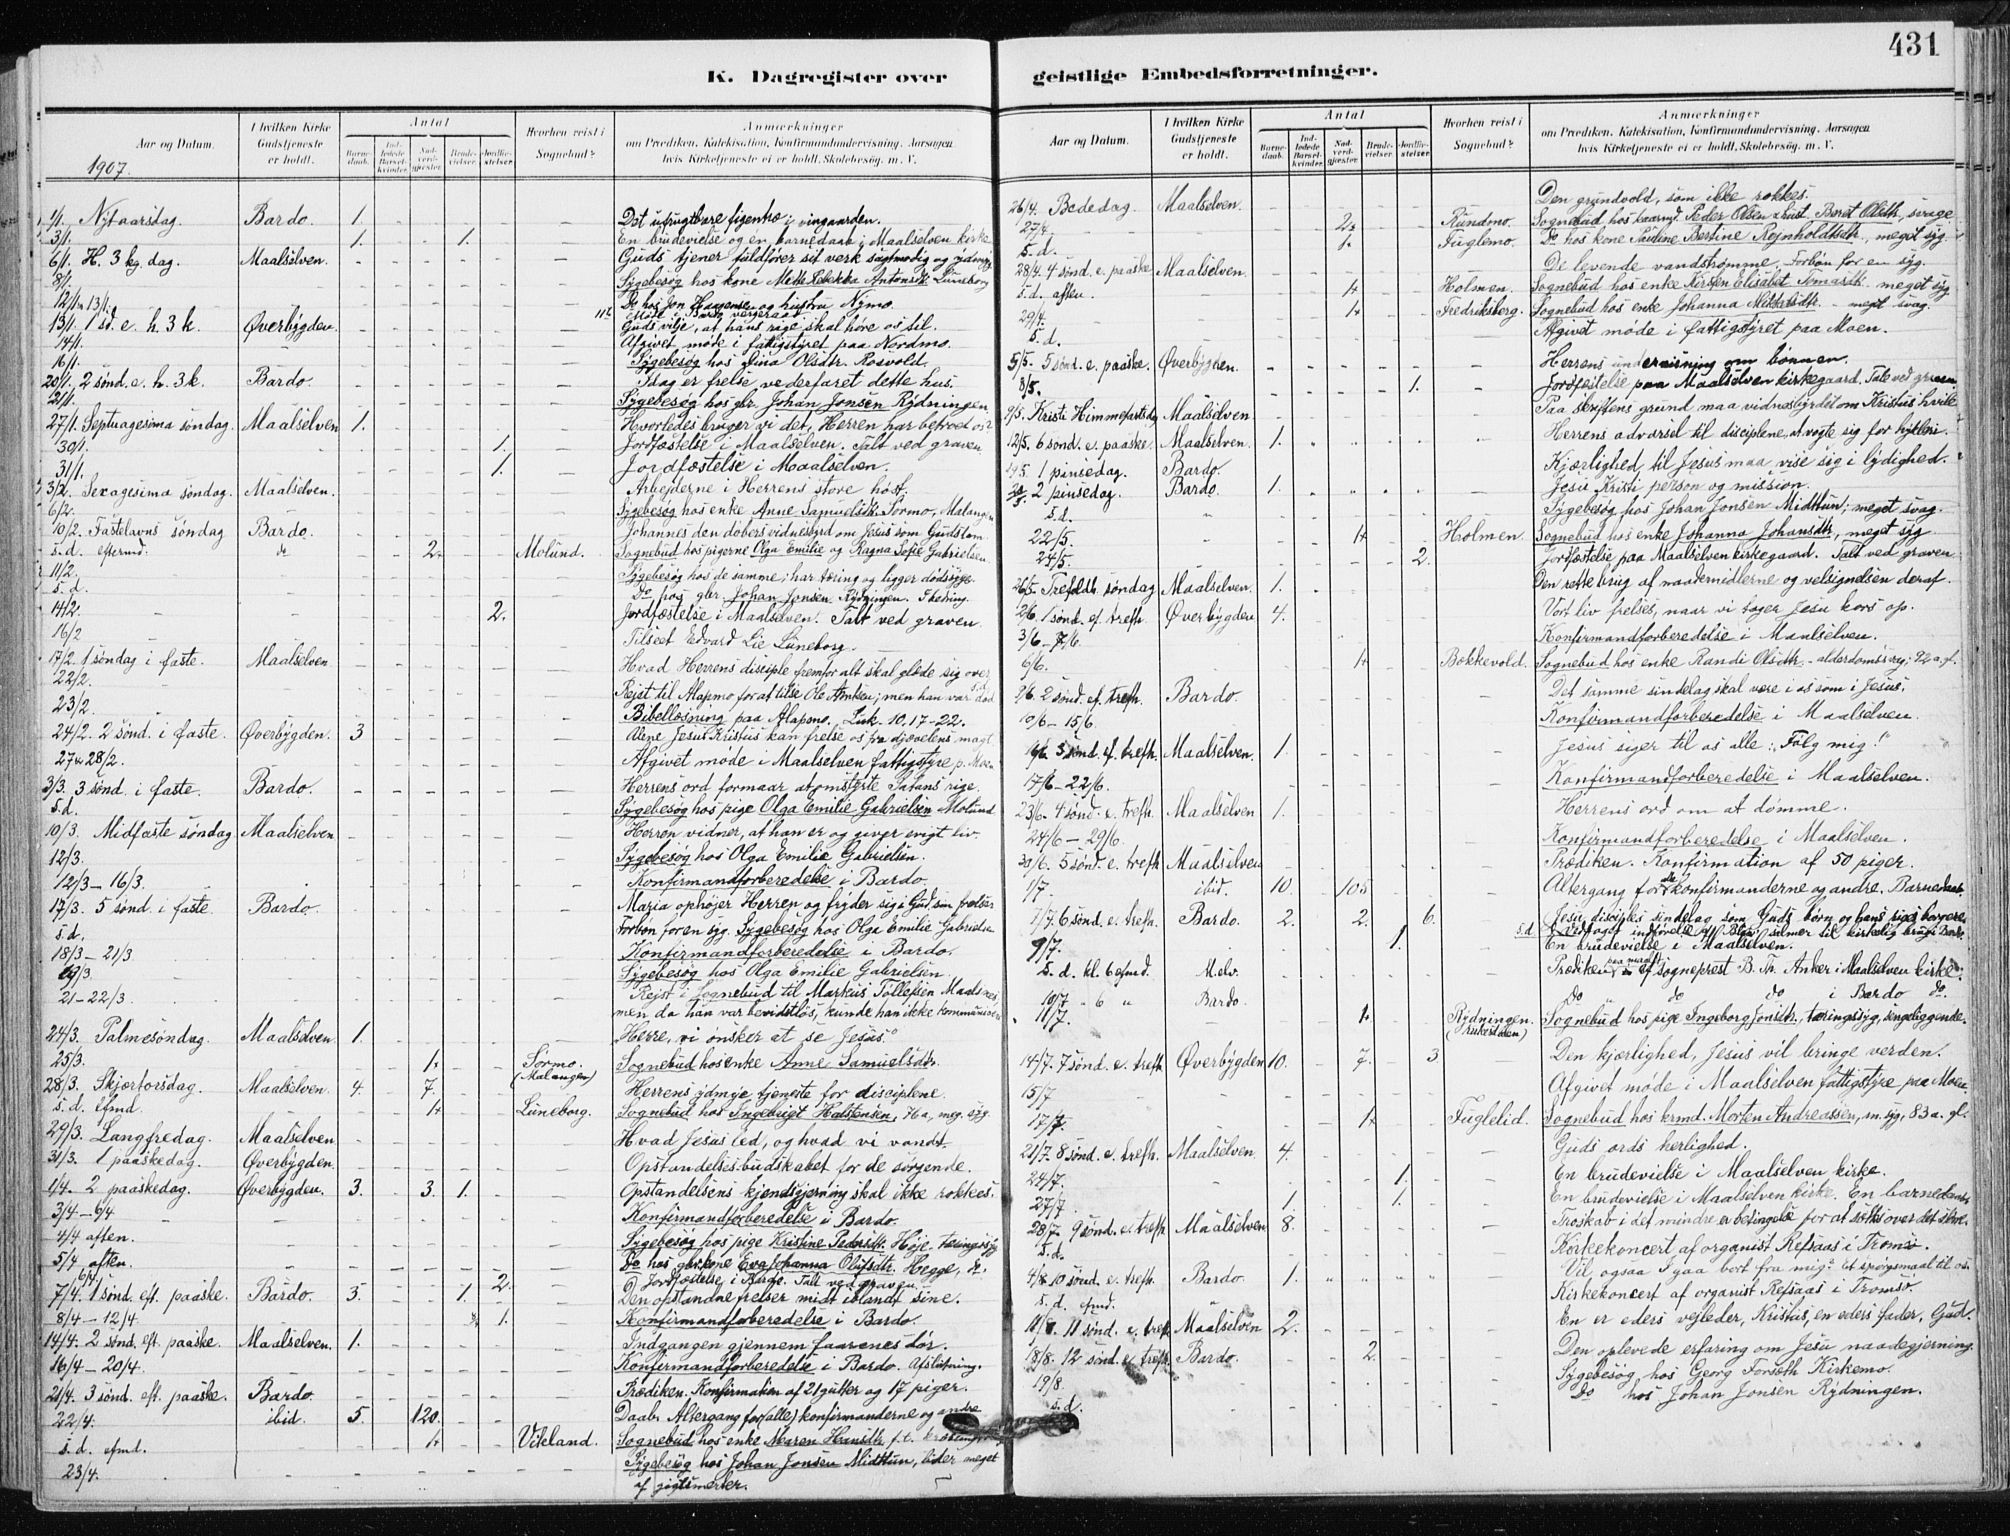 431
K. Dagregister over geistlige Embedsforretninger.
Aar og Datum.
I hvilken Kirke Gudstjeneste er holdt.
Antal
Barnedaab.
Indledede Barselkvinder.
Nadverdgjæster.
Brudevielser.
Jordfæstelser.
Hvorhen reist i Sognebud?
Anmærkninger
om Prædiken, Katekisation, Konfirmandundervisning. Aarsagen
hvis Kirketjeneste ei er holdt. Skolebesøg. m. V.
1907.
1/1. Nytaarsdag. Bardo. 1. Det ufrugtbare figentræ i vingaarden.
3/1. 1. 1. En brudevielse og en barnedaab i Maalselven kirke
6/1. H. 3 kg. dag. Maalselven. Guds tjener fuldfører sit verk sagtmodig og
8/1. Sygebesøg hos kone Mette Rebekka Antonsdtr. Luneborg
12/1 13/1. Do hos Jon Haagensen og hustru Nymo.
13/1. 1 sd. e. h. 3 k. Øverbygden. Guds vilje, at hans rige skal høre os til.
14/1. Afgivet møde i fattigstyret paa Nordmo.
16/1. Sygebesøg hos Olsdtr. Rosvold.
20/1. 2 sønd. e. h. 3 k. Bardo. Idag er frelse vederfaret dette hus.
21/1. Sygebesøg hos gbr. Johan Jonsen Rydningen
27/1. Septuagesima søndag. Maalselven 1. Hvorledes bruger vi det, Herren har betroet os?
30/1. 1. Jordfæstelse i Maalselven. Talt ved graven
31/1. 1. Jordfæstelse i Maalselven.
3/2. Sexagesima søndag. Maalselven. Arbejderne i Herrens store høst.
6/2. Sygebesøg hos enke Anne Samuelsdtr. Sormo, Malangen
10/2. Fastelavns søndag Bardo. Johannes den døbers vidnesbyrd om Jesus som Guds lam
s. d. eftermd. do 2. Molund. Sognebud hos pigerne Olga Emilie og Ragna Sofie Gabrielsen
11/2. Sygebesøg hos de samme; har tæring og ligger dødssyge.
s. d. Do hos gbr. Johan Jonsen Rydningen. I bedring.
14/2. 2. Jordfæstelse i Maalselven. Talt ved graven
16/2 Tilseet Edvard Lie Luneborg.
17/2. 1 søndag i faste. Maalselven Hvad Herrens disciple fremfor alt skal glæde sig over
22/2. Rejst til Alapmo for at tilse Ole; men han var død
23/2. Bibellæsning paa Alapmo. Luk. 10, 17-22.
24/2. 2 sønd. i faste. Øverbygden. 3 Alene Jesus Kristus kan frelse os fra djævelens magt
27 28/2. Afgivet møde i Maalselven fattigstyre p. Moen
3/3. 3 sønd. i faste. Bardo. Herrens ord formaar at omstyrte Satans rige
s. d. Sygebesøg hos pige Olga Emilie Gabrielsen Molund
10/3. Midfaste søndag Maalselven Herren vidner, at han er og giver evigt liv.
12/3. Sygebesøg hos Olga Emilie Gabrielsen.
12/3 – 16/3. Konfirmandforberedelse i Bardo.
17/3. 5 sønd. i faste Bardo. Maria ophøjer Herren og fryder sig i Gud sin frelser
s. d. Forbøn for en syg. Sygebesøg hos Olga Emilie Gabrielsen
18/3 – 21/3 Konfirmandforberedelse i Bardo.
19/3. Sygebesøg hos Olga Emilie Gabrielsen.
21–22/3. Rejst i sognebud til Markus Tollefsen Maalsnes,
men da han var bevidstløs, kunde han ikke kommuniceres
24/3. Palmesøndag. Maalselven. 1. Herre, vi ønsker at se Jesus.
25/3. 1+ Sormo. (Malangen) Sognebud hos enke Anne Samuelsdtr.
28/3. Skjærtorsdag. Maalselven. 4. 7. Herrens ydmyge tjeneste for disciplene.
s. d. efmd. 1+ Luneborg. Sognebud hos Ingebrigt Halstensen, 76 a, meg. syg.
29/3. Langfredag. Maalselven. Hvad Jesus led, og hvad vi vandt.
31/3. 1 paaskedag. Øverbygden. Opstandelsesbudskabet for de sørgende.
1/4. 2 paaskedag. Øverbygden. 3. 3. 1. Opstandelsens kjendsgjerning skal ikke rokkes.
3/4 – 6/4 Konfirmandforberedelse i Bardo.
4/4 aften. Sygebesøg hos pige Kristine Pedersdtr. Høje, tæringssyg
5/4 aften. Do hos gbr.kone Eva Johanna Olufsdtr. Hegge, do.
6/4. 2. Jordfæstelse i Bardo. Talt ved graven.
7/4. 1 sønd. eft. paaske. Bardo. 3. 1. Den opstandne frelser midt iblandt sine.
8/4 – 12/4. 1. Konfirmandforberedelse i Bardo.
14/4. 2 sønd. eft. paaske. Maalselven. 1. Indgangen gjennem faarenes dør.
16/4 – 20/4. Konfirmandforberedelse i Bardo. Afslutning.
21/4. 3 sønd. eft. paaske. Bardo. Prædiken. Konfirmation af 21 gutter og 17 piger.
22/4. ibid. 5. 120. Daab. Altergang for (alle) konfirmanderne og andre
s. d. efmd. 1+ Vikland. Sognebud hos enke Maren Hansdtr. f. t.
23/4. Sygebesøg hos Johan Jonsen Midthun, lider meget
af gigtsmerter.
26/4. Bededag. Maalselven. Den grundvold, som ikke rokkes.
27/4. 2+ Rundmo. Sognebud hos Peder Olsen Beret Olsdtr., svage
s. d. 1+ Fuglemo. Do hos kone Pauline Bertine Rejnholdtsdtr., meget syg
28/4. 4 sønd. e. paaske. Maalselven. De levende vandstrømme. Forbøn for en syg.
s. d. aften. 1+ Holmen. Sognebud hos enke Kirsten Elisabet Tomasdtr. meget syg
29/4. 1+ Fredriksberg. Sognebud hos enke Johanna Mikkelsdtr. – meget svag.
s. d. Afgivet møde i fattigstyret paa Moen.
5/5. 5 sønd. e. paaske. Øverbygden. Herrens undervisning om bønnen.
8/5. 1. Jordfæstelse paa Maalselven kirkegaard. Tale ved graven
9/5. Kristi Himmelfartsdag Maalselven Paa skriftens grund maa vidnesbyrdet om Kristus hvile
12/5. 6 sønd. e. paaske. Maalselven. 1. Herrens advarsel til disciplene, at vogte sig for hykleri.
19/5 1 pinsedag. Bardo. Kjærlighed til Jesus maa vise sig i lydighed.
20/5. 2 pinsedag. Bardo. 1. Jesu Kristi person og mission.
s. d. Sygebesøg hos Johan Jonsen Midthun; meget svag.
22/5. 1+ Holmen. Sognebud hos enke Johanna Johansdtr., meget syg
24/5. 2. Jordfæstelse paa Maalselven kirkegaard. Talt ved graven
26/5. Trefoldh. søndag Maalselven. 1. Den rette brug af naademidlerne og velsignelsen deraf.
2/6. 1 sønd. ef. trefh. Øverbygden 4. Vort liv frelses, naar vi tager Jesu kors op.
3/6 – 7/6. Konfirmandforberedelse i Maalselven.
6/6. 1+ Bakkevold. Sognebud hos enke Randi Olsdtr. – alderdomssvag; 92 a. gl.
9/6. 2 sønd. ef. trefh. Bardo. Det samme sindelag skal være i os som i Jesus.
10/6 – 15/6. Konfirmandforberedelse i Maalselven.
16/6. 3 sønd. ef. trefh. Maalselven. 1. Jesus siger til os alle: „Følg mig!"
17/6 – 22/6. Konfirmandforberedelse i Maalselven.
23/6. 4 sønd. e. trefh. Maalselven 1. Herrens ord om at dømme.
24/6 – 29/6. Konfirmandforberedelse i Maalselven.
30/6. 5 sønd. e. trefh. Maalselven Prædiken. Konfirmation af 50 piger.
1/7. ibid. 10. 105 Altergang for de konfirmanderne og andre. Barnedaab.
7/7. 6 sønd. e. trefh. Bardo. 2. 2. 6. Jesu disciples sindelag som Guds børn og hans riges borgere
s. d.
9/7. 1. En brudevielse i Maalselven.
s. d. kl. 6 efmd. M.elv. Prædiken af sogneprest B. Th. Anker i Maalselven kirke.
10/7 „ 6 „ Bardo. Do do do i Bardo do.
11/7. 1+ Rydningen. Sognebud hos pige Ingeborg Jonsdtr., tæringssyg, sengeliggende.
14/7. 7 sønd. e. trefh. Øverbygden 10. 7. 3. Den kjærlighed, Jesus vil bringe verden.
15/7 Afgivet møde i Maalselven fattigstyre paa Moen.
17/7. 1+ Fuglelid. Sognebud hos krmd. Morten Andreassen, m. syg, 83 a. gl.
21/7. 8 sønd. e. trefh. Maalselven 4. Guds ords herlighed.
24/7. 1. En brudevielse i Maalselven kirke.
27/7. 1. 1. En brudevielse i Maalselven kirke. En barnedaab.
28/7. 9 sønd. e. trefh. Maalselven 8. Troskab i det mindre er betingelse for at sættes over det større.
s. d. Kirkekoncert af organist Refsaas i Tromsø.
4/8 10 sønd. e. trefh. Bardo. 1. Vil ogsaa I gaa bort fra mig? Et spørgsmaal til os.
s. d. efmd. Kirkekoncert af organist Refsaas i Tromsø.
11/8. 11 sønd. e. trefh. Maalselven 2. En er eders vejleder, Kristus, en eders fader, Gud.
18/8. 12 sønd. e. trefh. Bardo. 2. Den oplevede erfaring om Jesu naadegjerning.
19/8. Sygebesøg hos Georg Forseth Kirkemo.
s. d. Do hos Johan Jonsen Rydningen.